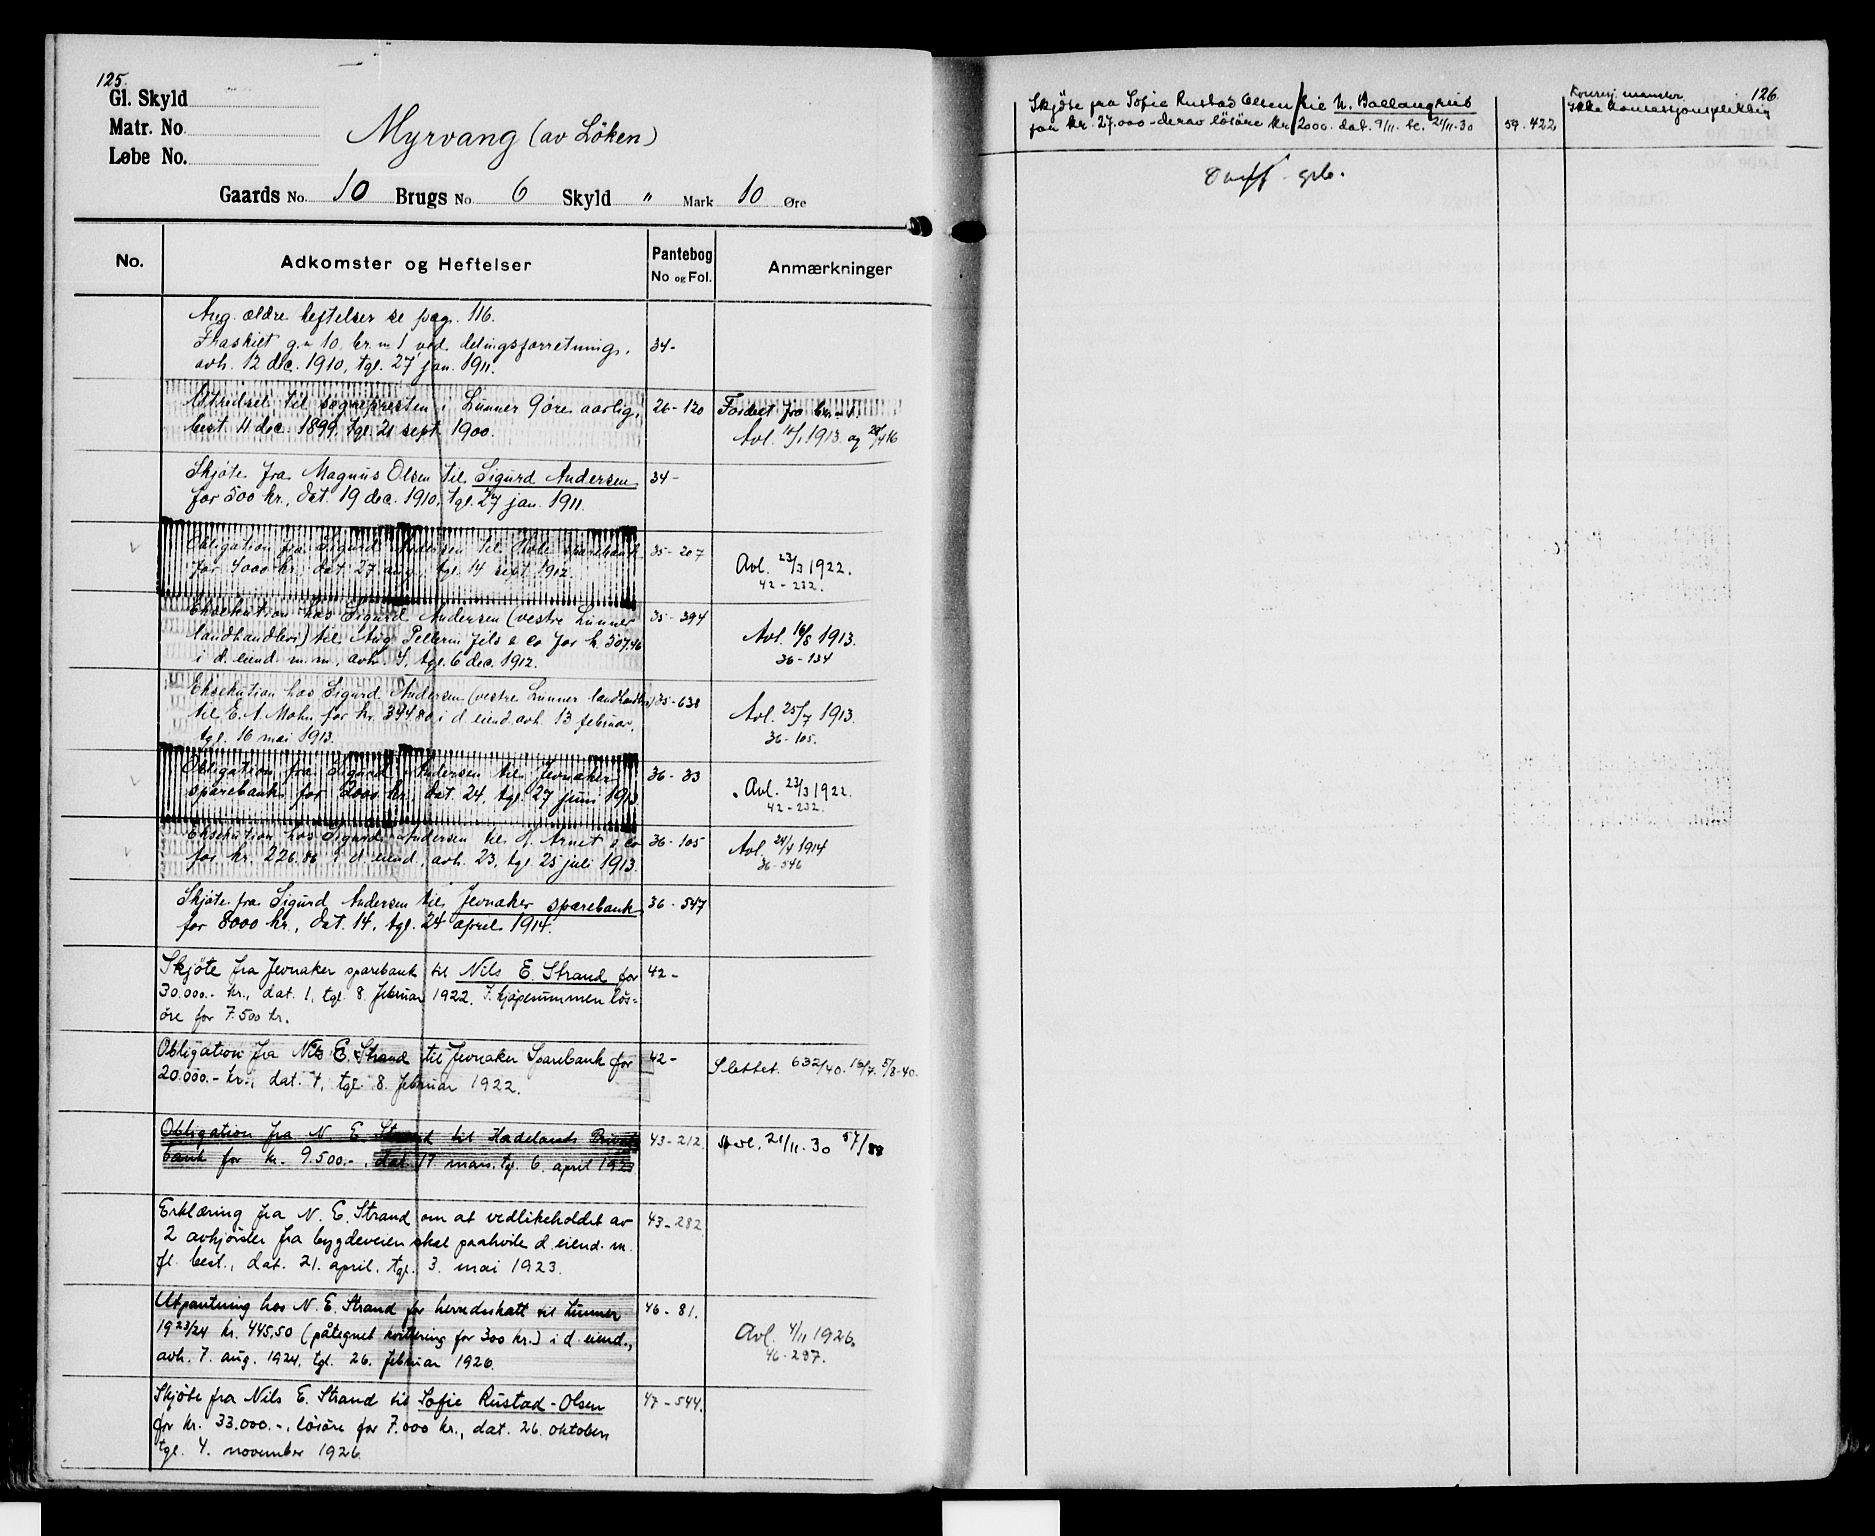 125.
Gl. Skyld
Matr. No.
Løbe No.
Myrvang (av Löken)
Gaards No. 10 Brugs No. 6 Skyld " Mark 10 Øre
No. Adkomster og Heftelser Pantebog No og Fol. Anmærkninger
Ang. ældre heftelser se pag. 116.
Fraskilt g.n 10, br.n 1 ved delingsforretning, 34-
avh. 12 dec. 1910, tgl. 27 jan. 1911.
til sognepresten i Lunner 9 øre aarlig, 26-120
best. 11 dec. 1899, tgl. 21 sept. 1900. Avl. 1913 og
Skjøte fra Magnus Olsen til Sigurd Andersen 34-
for 500 kr., dat. 19 dec. 1910, tgl. 27 jan. 1911.
Obligation fra Sigurd Andersen til Hole sparebank 35-207
for 4000 kr., dat. 27 aug., tgl. 14 sept 1912. Avl. 23/3 1922.
42-232.
Eksekution hos Sigurd Andersen (vestre Lunner 35-394
landhandleri) til Aug. Pellerin fils & Co for kr. 507.46 Avl. 16/8 1913.
i d. eiend. m.m., avh. 5, tgl. 6 dec. 1912. 36-134
Eksekution hos Sigurd Andersen (vestre Lunner landhandleri) 35-638
til E. A. Mohn for kr. 344.80 i d. eiend. avh. 13 februar, Avl. 25/7 1913.
tgl. 16 mai 1913. 36-105.
Obligation fra Sigurd Andersen til Jevnaker 36-33
sparebank for 2000 kr., dat. 24, tgl. 27 juni 1913 Avl. 23/3 1922.
42-232.
Eksekution hos Sigurd Andersen til H. Arnet & co 36-105
for kr. 226.86 i d. eiend., avh. 23, tgl. 25 juli 1913. Avl. 24/4 1914
36-546
Skjøte fra Sigurd Andersen til Jevnaker sparebank 36-547
for 8000 kr., dat. 14, tgl. 24 april 1914.
Skjøte fra Jevnaker sparebank til Nils E. Strand for 42-
30.000.- kr., dat. 1, tgl. 8. februar 1922. I kjøpesummen løs-
øre for 7.500 kr.
Obligation fra Nils E. Strand til Jevnaker Sparebank for 42-
20.000.- kr., dat. 4, tgl. 8. februar 1922. Slettet. 632/40. 5/8-40.
Obligation fra N. E. Strand til Hadelands Privat- 43-212
bank for kr. 9.500.-, dat. 17 mars, tgl. 6. april 1923 Avl. 21/11.30 57/
Erklæring fra N. E. Strand om at vedlikeholdet av 43-282
2 avkjørsler fra bygdeveien skal paahvile d. eiend. m.
fl. best., dat. 21. april, tgl. 3. mai 1923.
Utpantning hos N. E. Strand for herredsskatt til Lunner 46-81.
1923/24 kr. 445,50 (påtegnet kvittering for 300 kr.) i d. eiend., Avl. 4/11 1926.
avh. 7. aug. 1924, tgl. 26. februar 1926. 46-287.
Skjøte fra Nils E. Strand til Sofie Rustad-Olsen 47-544.
for kr. 33.000.-, løsøre for 7.000 kr., dat. 26. oktober,
tgl. 4. november 1926.
126.
Skjøte fra Sofie Rustad Olsen til N. Ballangrud
for kr. 27.000 - derav løsøre kr. 2000. dat. 9/11. tl. 21/11-30 57.422
Ikke konsesjonspliktig